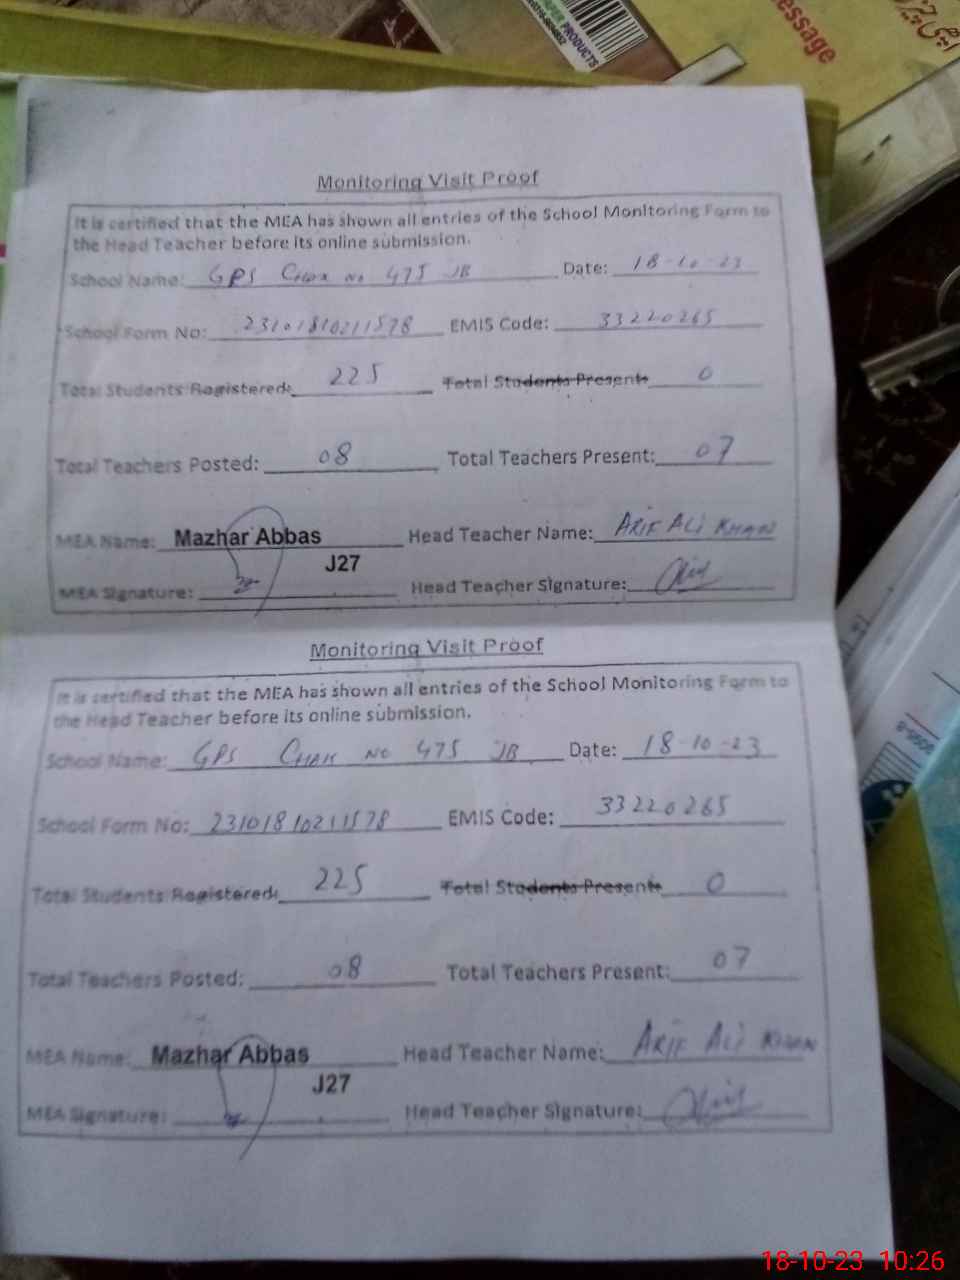 PRODUCTS
essage
Monitoring Visit Proof
It is certified that the MEA has shown all entries of the School Monitoring Form to
the Head Teacher before its online submission.
School Name: GPS Chak No 475 JB Date: 18-10-23
School Form No: 23101810211578 EMIS Code: 33220265
Total Students Registered: 225 Total Students Present: 0
Total Teachers Posted: 08 Total Teachers Present: 07
MEA Name: Mazhar Abbas Head Teacher Name: ARIF ALI KHAN
J27
MEA Signature: Head Teacher Signature:
Monitoring Visit Proof
It is certified that the MEA has shown all entries of the School Monitoring Form to
the Head Teacher before its online submission.
School Name: GPS CHAK NO 475 JB Date: 18-10-23
School Form No: 23101810211578 EMIS Code: 33220265
Total Students Registered: 225 Total Students Present: 0
Total Teachers Posted: 08 Total Teachers Present: 07
MEA Name: Mazhar Abbas Head Teacher Name: ARIF ALI KHAN
J27
MEA Signature: Head Teacher Signature:
18-10-23 10:26